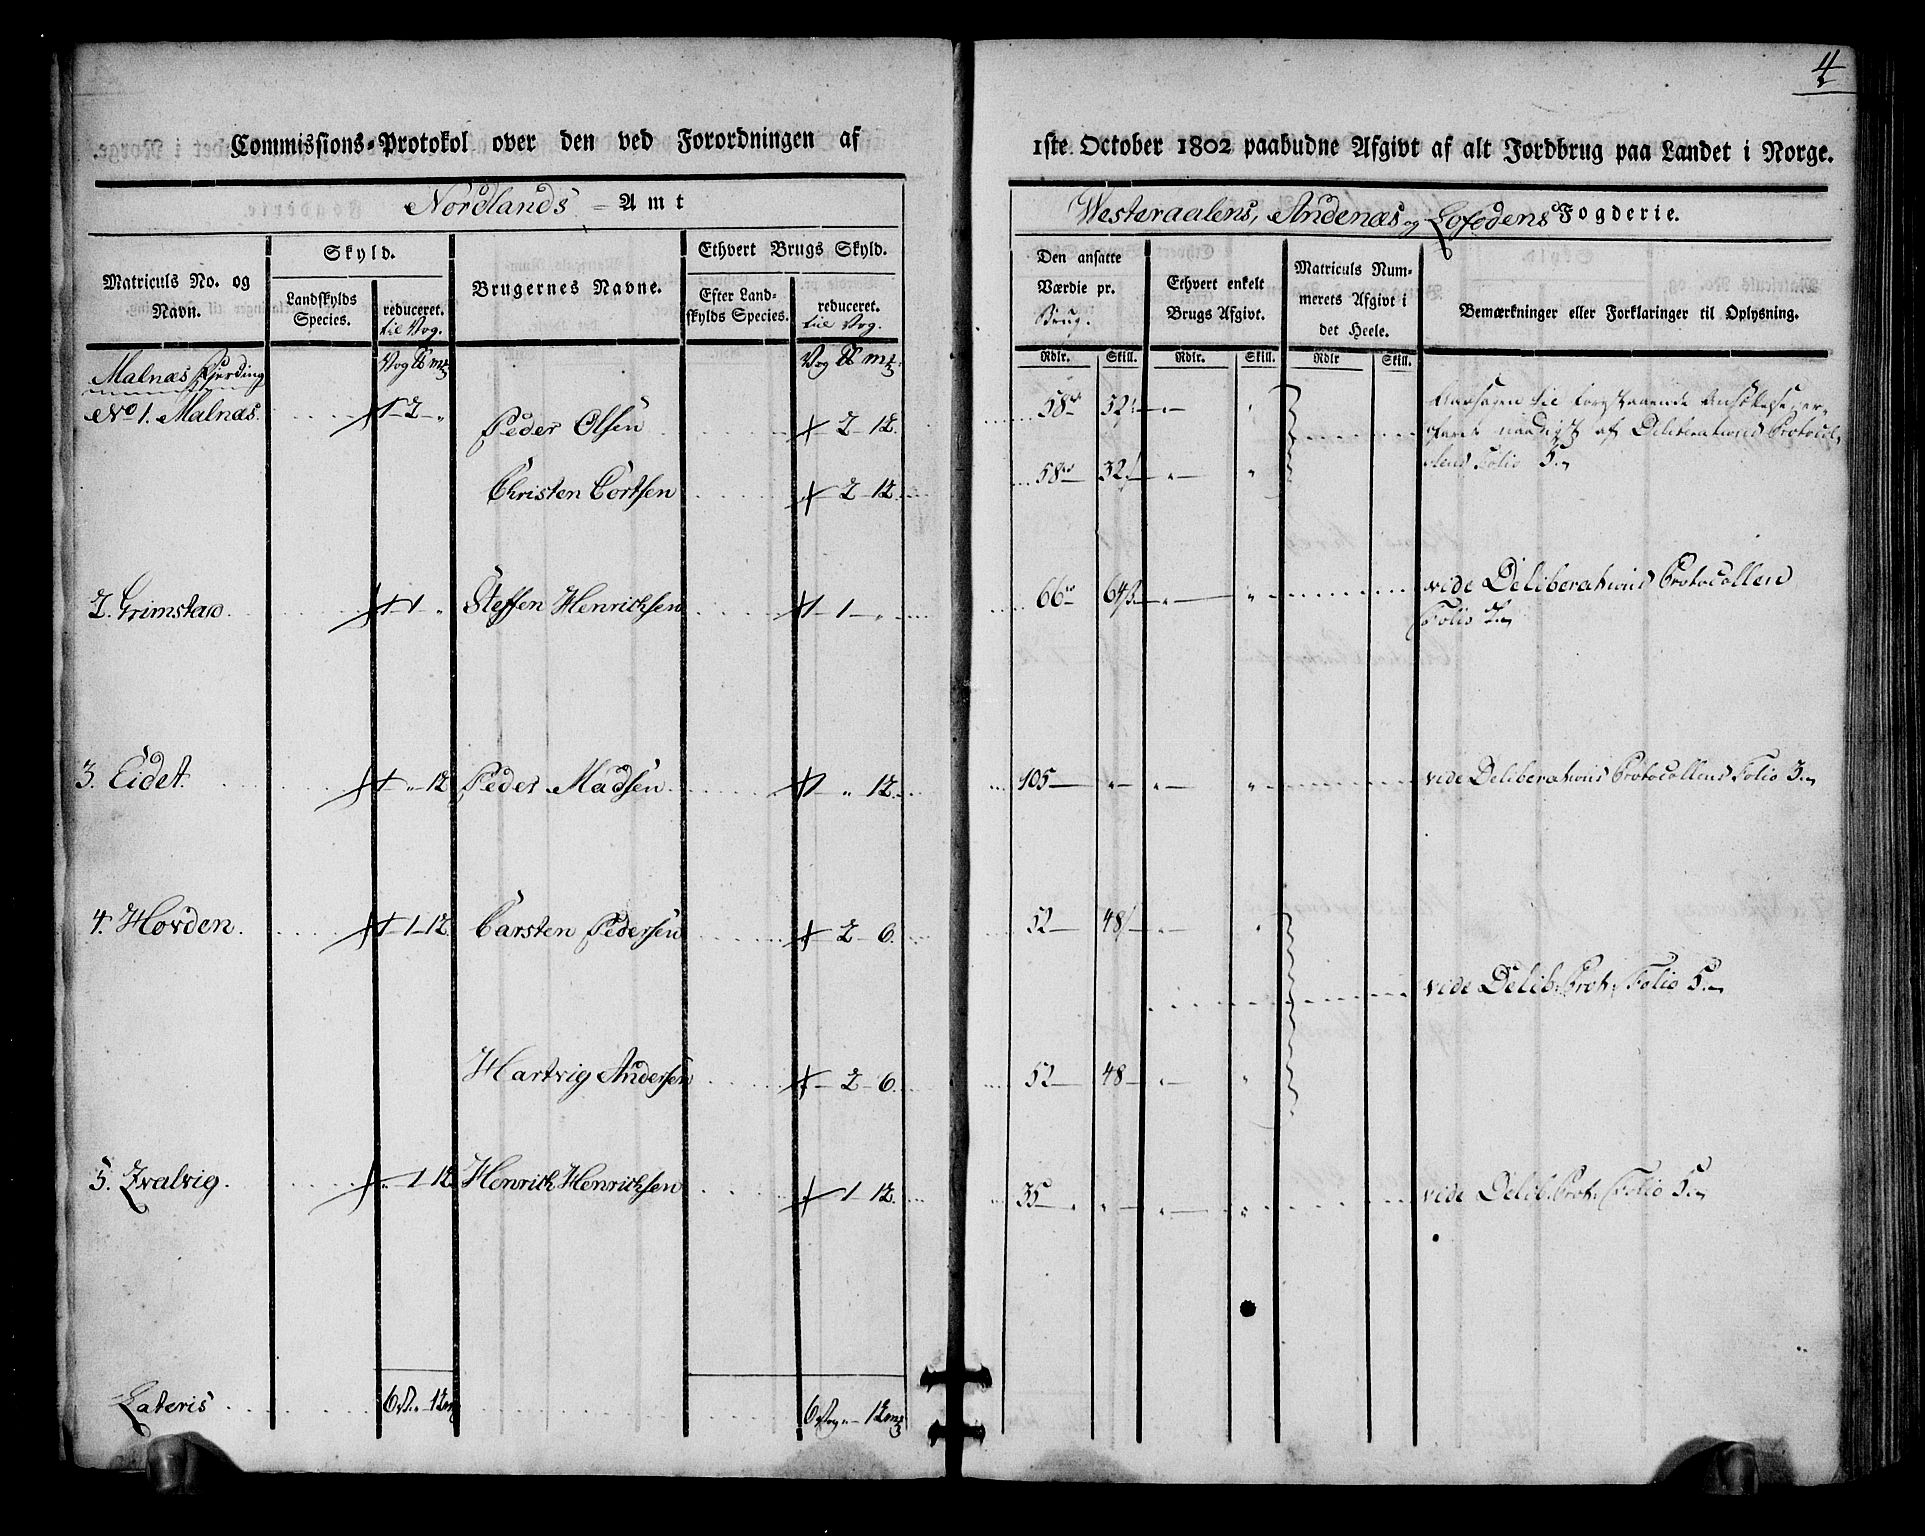 4
Commissions-Protokol over den ved Forordningen af 1ste October 1802 paabudne Afgivt af alt Jordbrug paa Landet i Norge.
Nordlands - Amt
Westeraalens, Andenæs og Lofodens Fogderie.
Matriculs No. og Navn.
Skyld.
Landskylds Species.
reduceret. til Vog.
Brugernes Navne.
Ethvert Brugs Skyld.
Efter Landskylds Species.
reduceret. til Vog.
Den ansatte Værdie pr. Brug.
Ethvert enkelt Brugs Afgivt.
Matriculs Nummerets Afgivt i det Heele.
Bemærkninger eller Forklaringer til Oplysning.
Rdlr. Skill. Rdlr. Skill. Rdlr Skill.
Malnæs Fjerding
No 1. Malnæs. 1 - 2 - " Peder Olsen 2 - 12. 58 32
Aarsagen til forestaaende Ansættelse er-
fares naadigst af Deliberations Protocol-
lens Folio 5.
Christen Cortsen 2 - 12. 58 32
2. Grimstad. 1 - 1 " Steffen Henrichsen 1 - 1 - " 66 64 vide Deliberations Protocollen
Folio 7.
3. Eidet. 1 - " - 12 Peder Madsen 1 - " 12. 105 " vide Deliberations Protocollens Folio 3.
4. Hovden. 1 - 1 - 12 Carsten Pedersen 2 - 6. 52 48
vide Delib. Prot. Folio 5.
Hartvig Andersen 2 - 6. 52 48
5. Qvalvig. " - 1 12 Henrich Henrichsen 1 - 12. 35 " vide Delib. Prot. Folio 5.
Lateris 6 V. " - 12 6 Vog " - 12